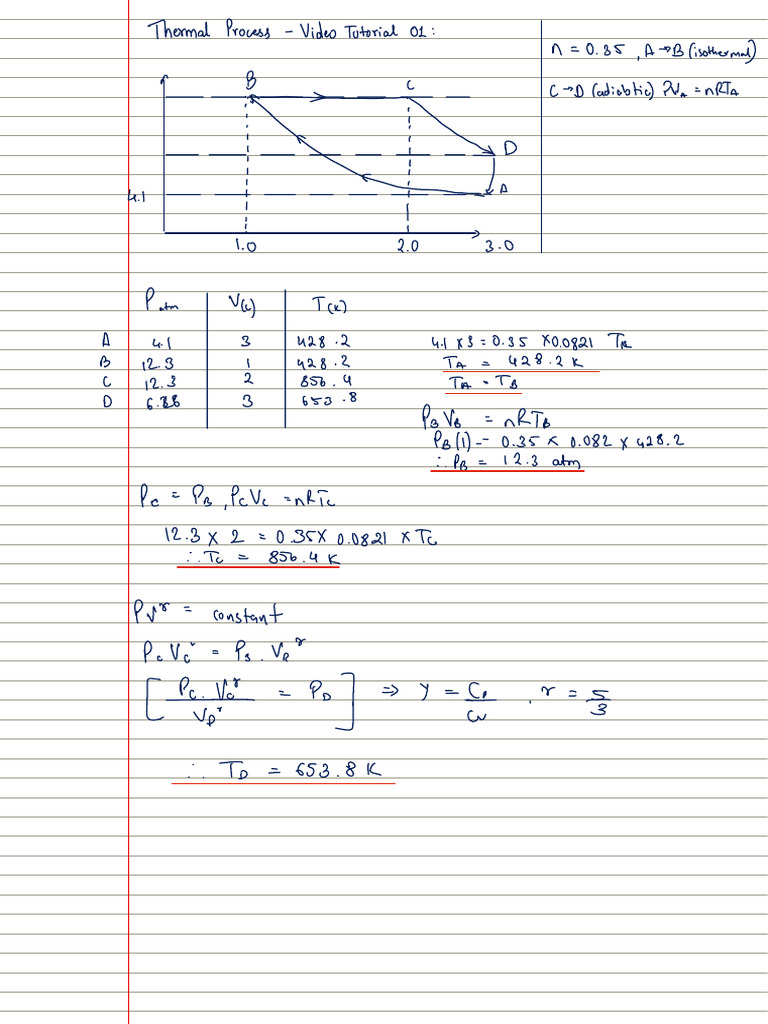 Thermal Process - Video Tutorial 01:
n = 0.35 , A→B (isothermal)
C→D (adiabtic) PVA = nRTA
B
C
D
A
4.1
1.0
2.0
3.0
P atm
V(L)
T(K)
A 4.1 3 428.2
B 12.3 1 428.2
C 12.3 2 856.4
D 3 653.8
4.1 x 3 = 0.35 x 0.0821 TA
TA = 428.2 K
TA = TB
PB VB = nRTB
PB (1) = 0.35 x 0.082 x 428.2
∴ PB = 12.3 atm
PC = PB , PC VC = nRTC
12.3 x 2 = 0.35 x 0.0821 x TC
∴ TC = 856.4 K
PV^r = constant
PC VC^r = . ^r
[ PC . VC^r / = PD ] => γ = CP / CV , r = 5/3
∴ TD = 653.8 K